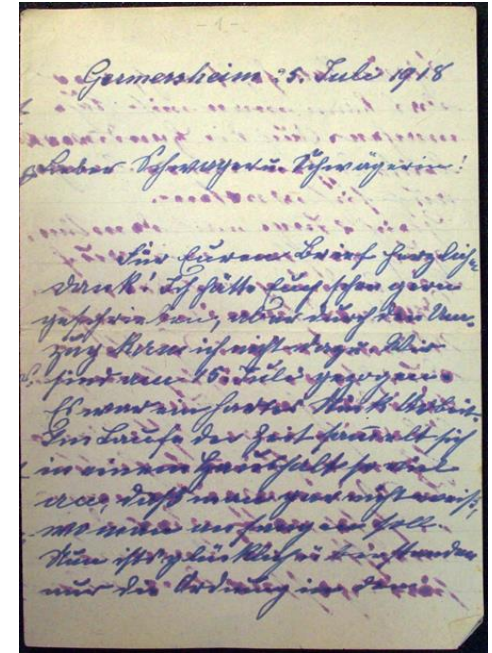 - 1 -
Germersheim: 5. Juli 1918
Lieber Schwager u. Schwägerin!
Für Euren Brief herzlich
Dank! Ich hätte Euch schon gern
geschrieben, aber durch den Um-
zug kam ich nicht dazu. Wir
sind am 15. Juli gezogen.
Es war ein hartes Stück Arbeit.
Im Laufe der Zeit sammelt sich
in einem Haushalt so viel
an, daß man gar nicht weiß,
wo man anfangen soll.
Nun ists glücklich
nur die Ordnung in